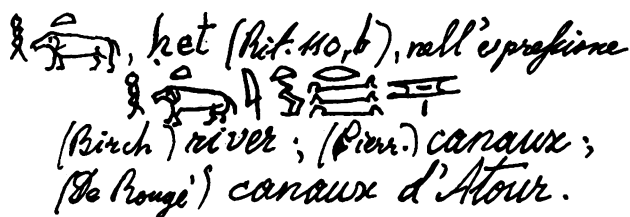 , ḥet (Rit. 110, b), nell'espressione
(Birch) river; (Pierr.) canaux;
(De Rougé) canaux d'Atour.